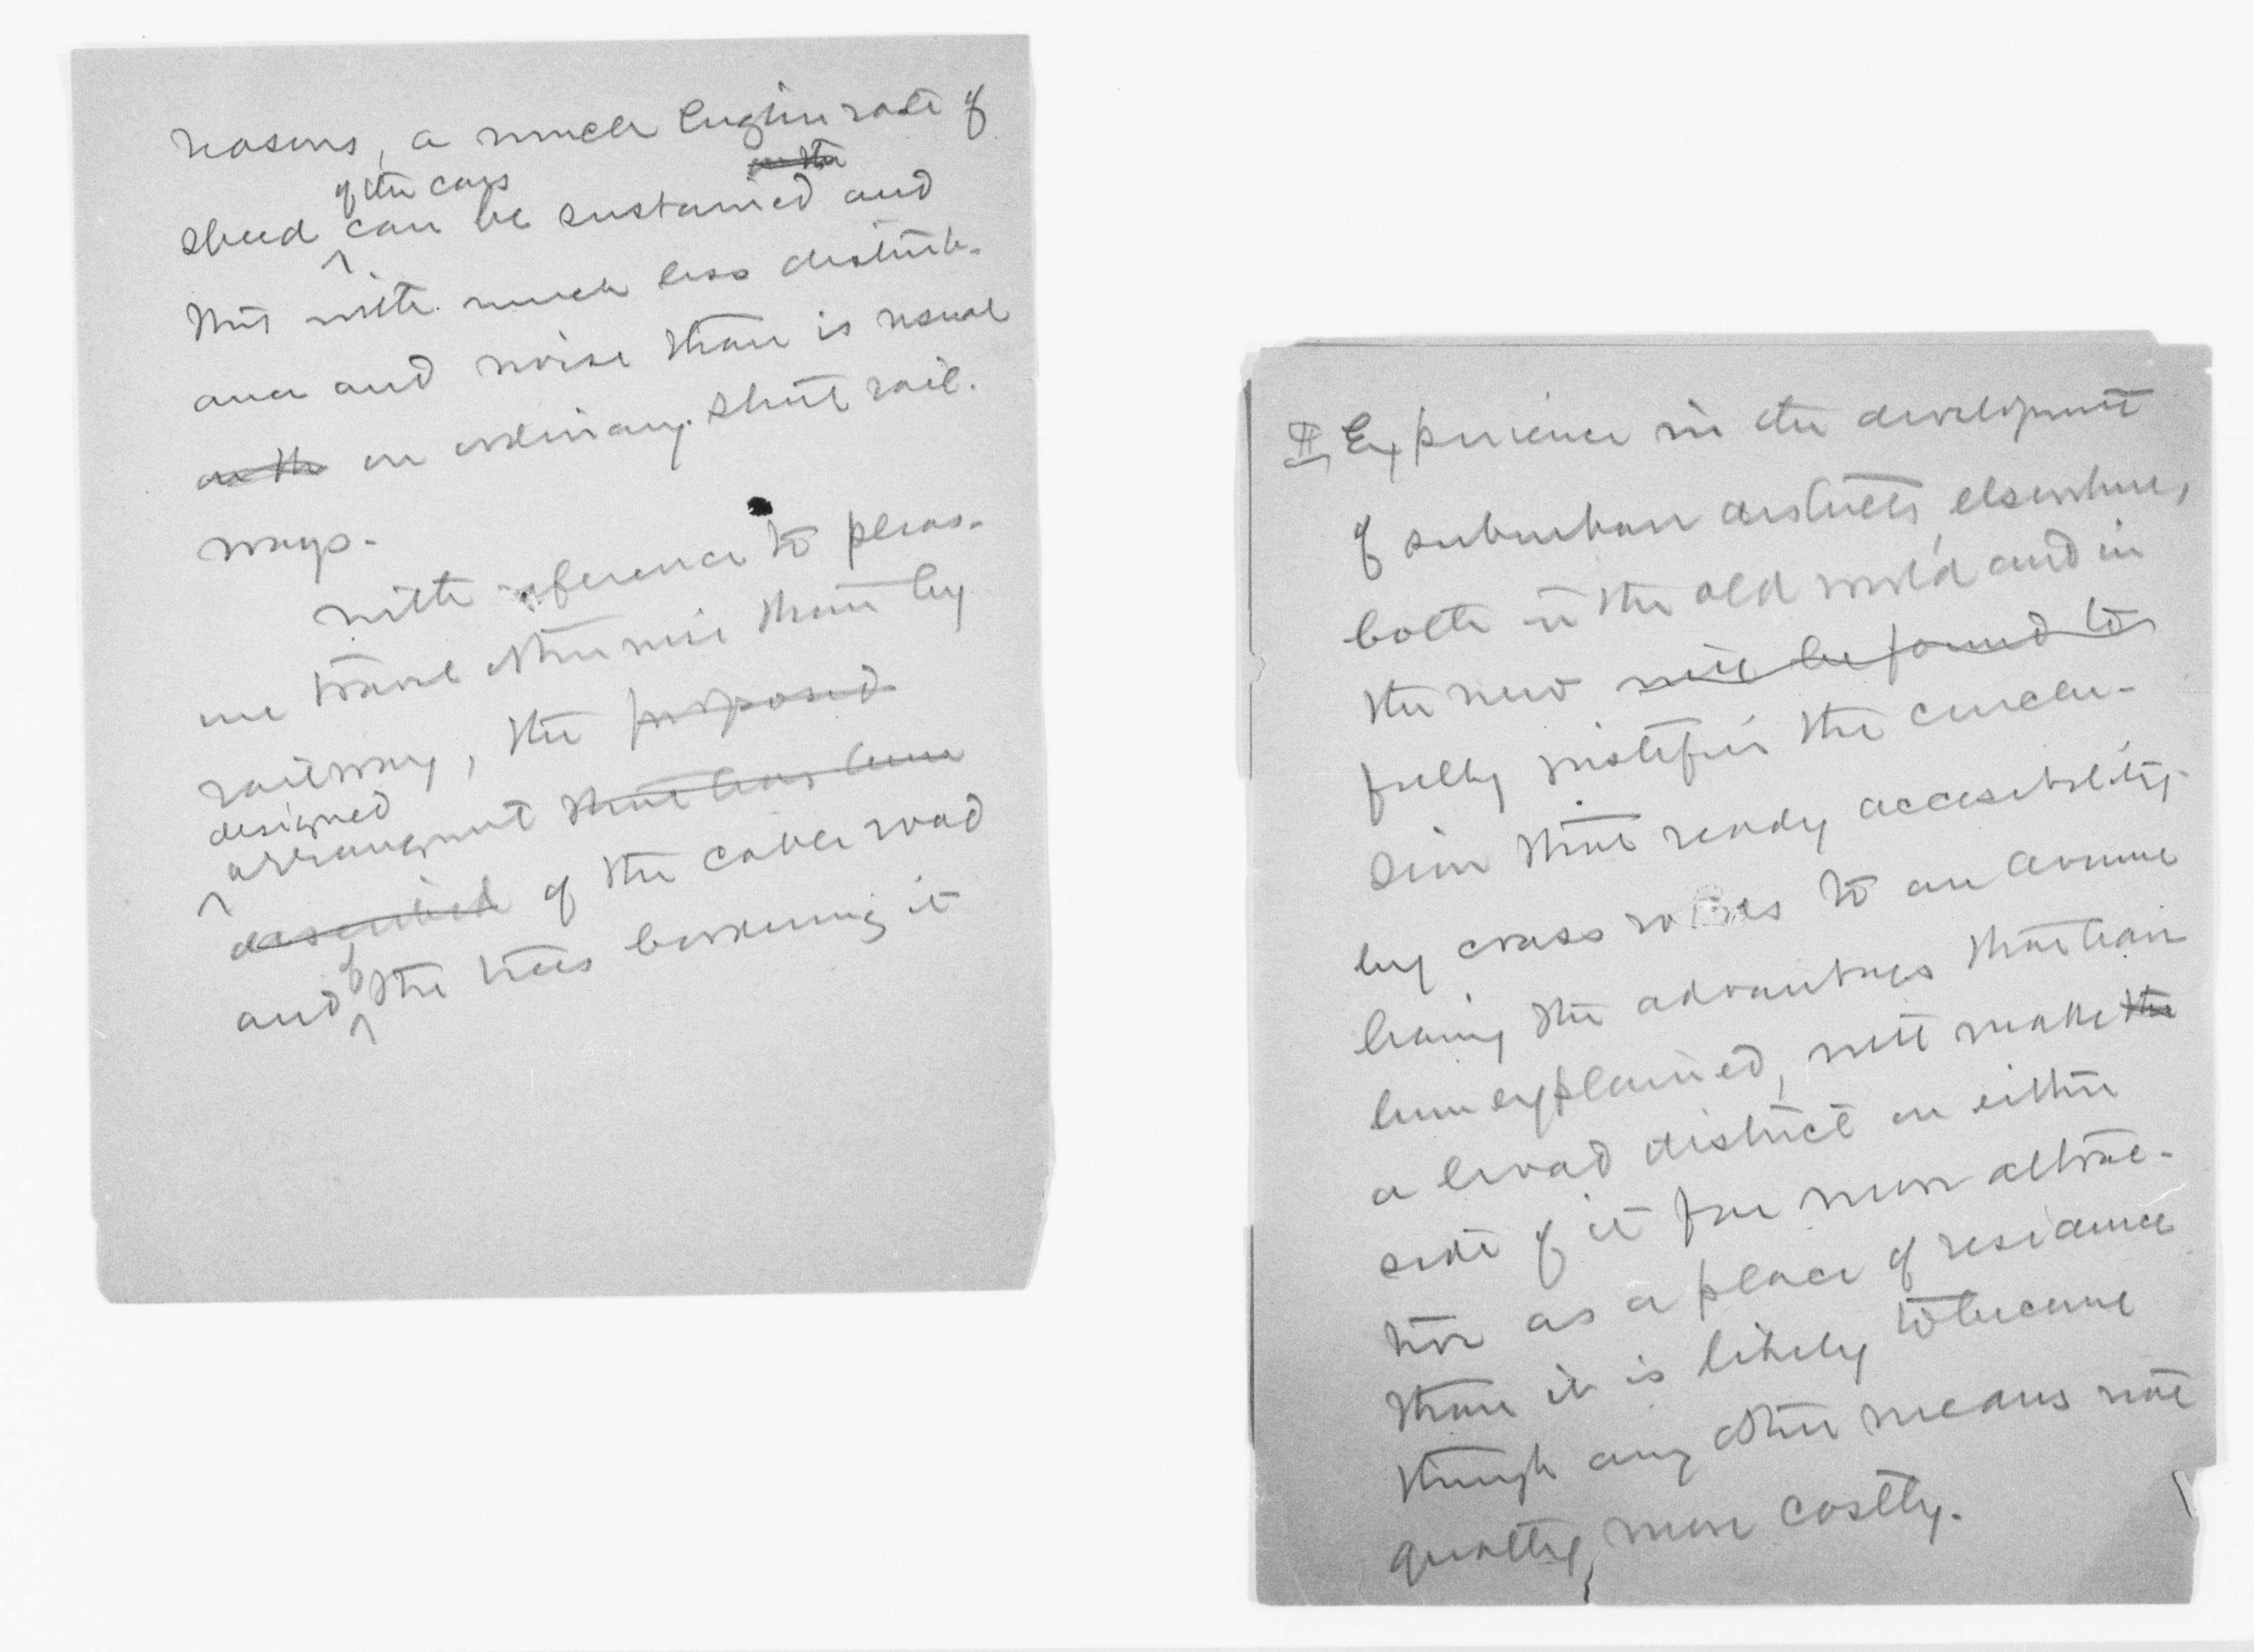 reasons, a much higher rate of
speed of the cars can be sustained on the and
this with much less disturb-
ance and noise than is usual
on the on ordinary street rail-
ways.
With reference to pleas-
ure travel otherwise than by
railway, the proposed
designed arrangement that has been
described of the cable road
and of the trees bordering it
II Experience in the development
of suburban districts, elsewhere,
both in the old world and in
the new will be found to
fully justifies the conclu-
sion that ready accesibility
by cross roads to an avenue
having the advantages that have
been explained, will make the
a broad district on either
side of it far more attrac-
tive as a place of residence
than it is likely to become
though any other means not
greatly more costly.